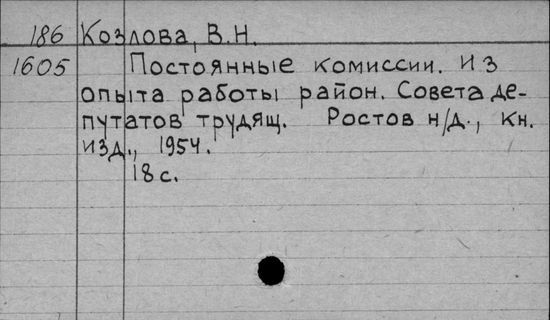 186 Козлова, В.Н.
1605 Постоянные комиссии. Из
опыта работы район. Совета де-
путатов трудящ. Ростов н/д., кн.
изд., 1954.
18 с.